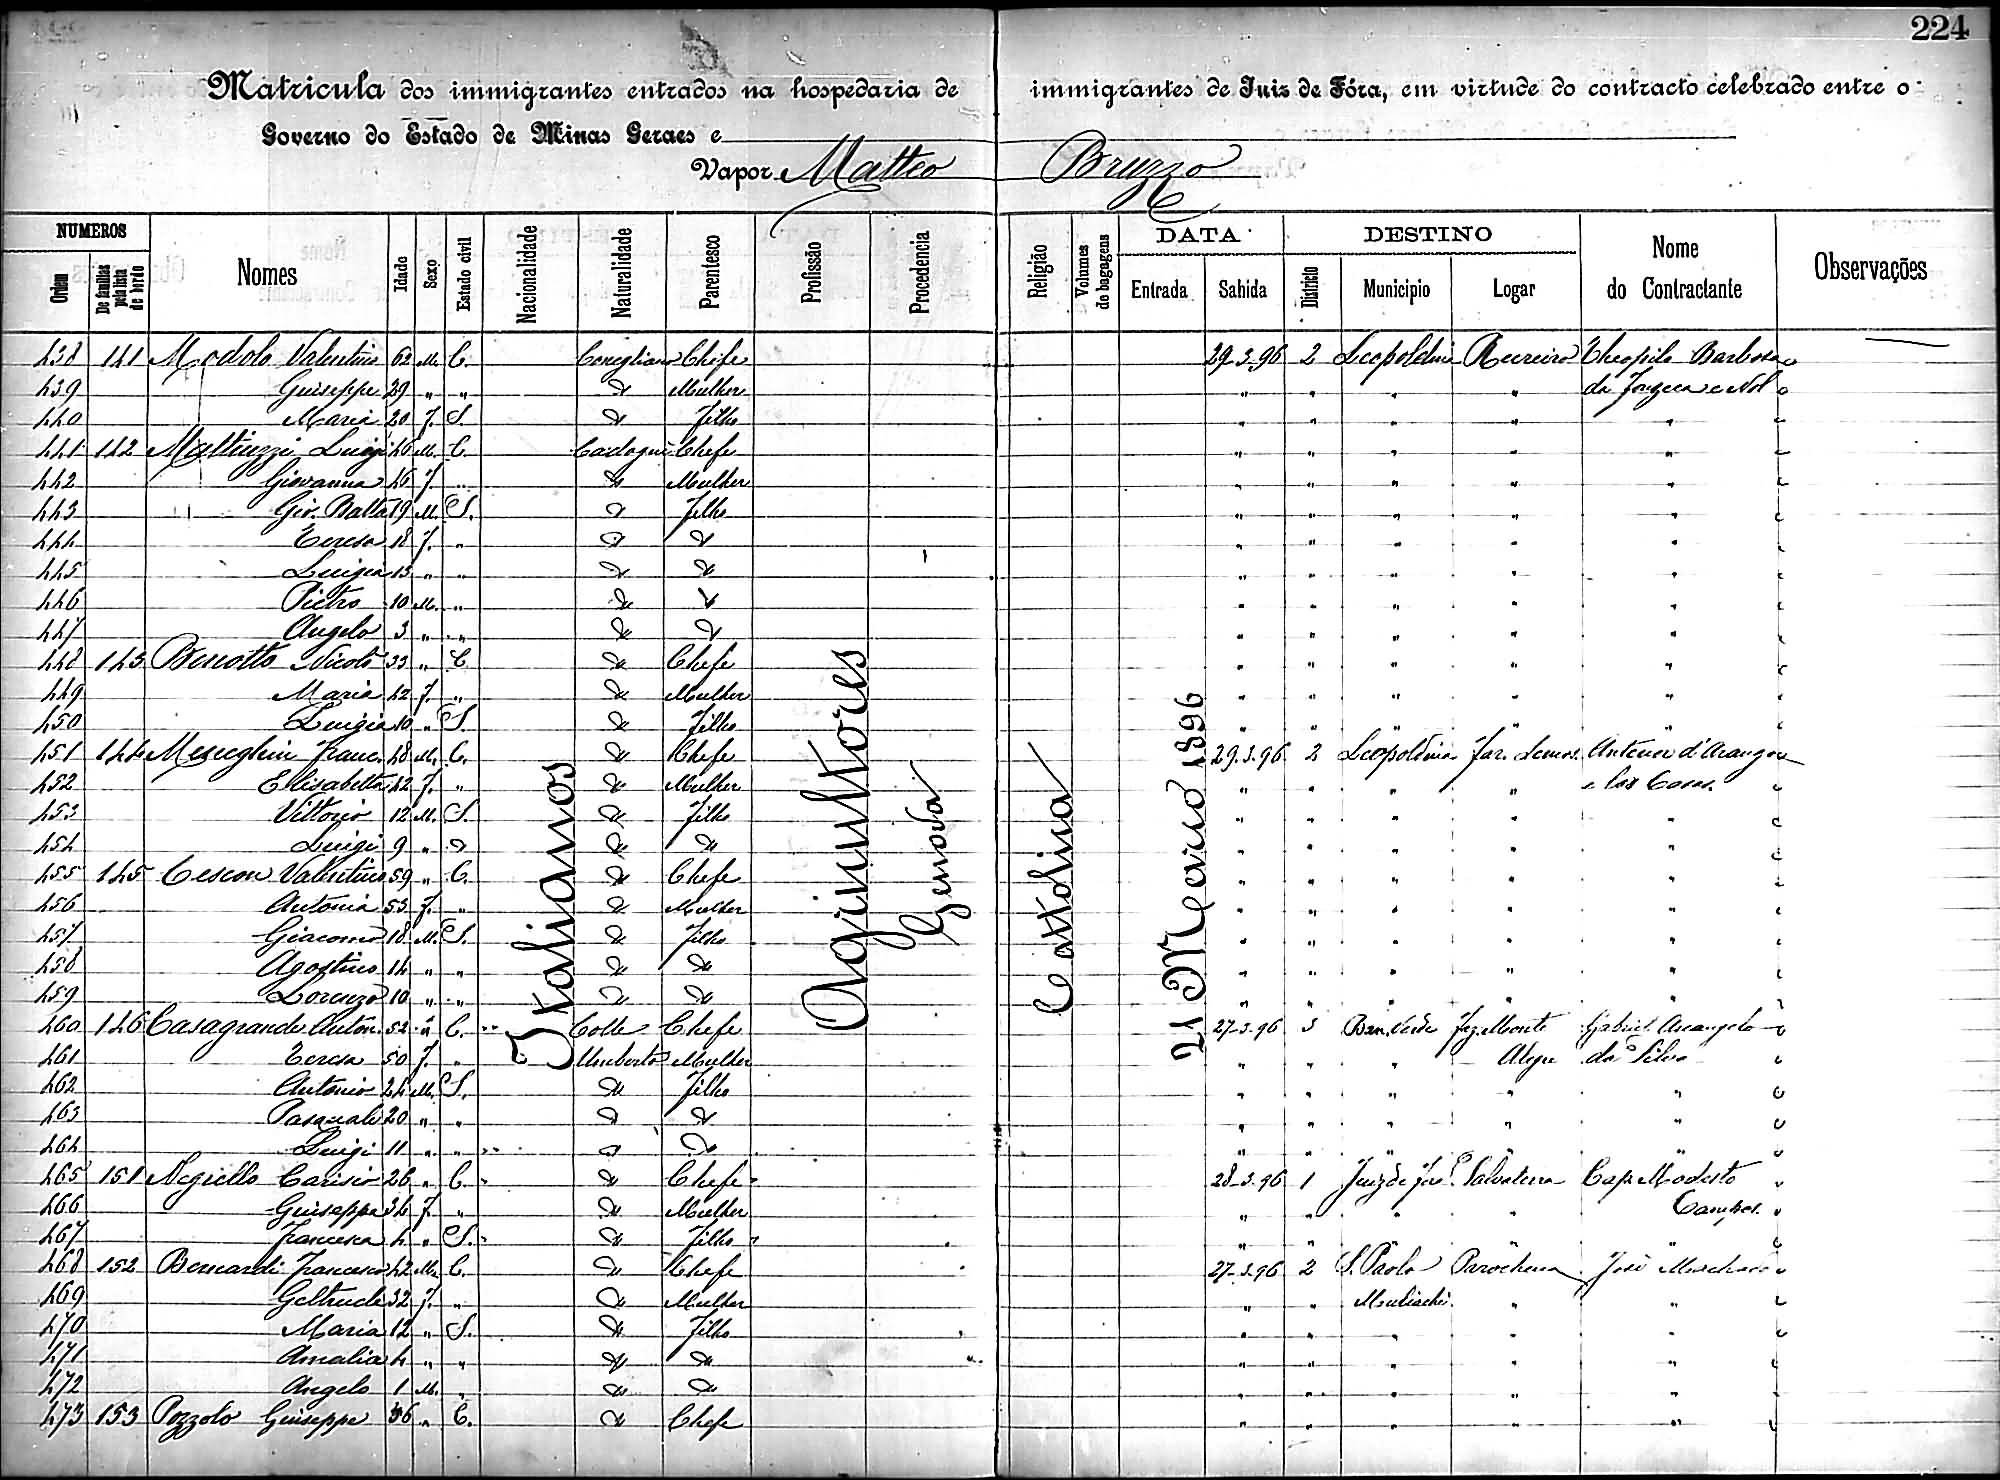 224
Matricula dos immigrantes entrados na hospedaria de immigrantes de Juiz de Fóra, em virtude do contracto celebrado entre o
Governo do Estado de Minas Geraes e
Vapor Matteo Bruzzo
NUMEROS Nomes Idade Sexo Estado civil Nacionalidade Naturalidade Parentesco Profissão Procedencia Religião Volumes de bagagens DATA DESTINO Nome do Contractante Observações
Ordem De familias pela lista de bordo Entrada Sahida Districto Municipio Logar
Italianos
Agricultores
Genova
21 Março 1896
438 141 Modolo Valentino 62 M. C. Conegliano Chefe 29-3-96 2 Leopoldina Recreio Theophilo Barbosa
439 Guiseppe 29 " " D Mulher " " " " da Fonseca e
440 Maria 20 F. S. D Filho " " " " "
441 142 Luigi 46 M. C. Chefe " " " " "
442 Giovanna 46 F. " D Mulher " " " " "
443 Gio. Batta 19 M. S. D Filho " " " " "
444 Teresa 18 F. " D D " " " " "
445 Luigia 13 " " D D " " " " "
446 Pietro 10 M. " D D " " " " "
447 Angelo 3 " " D D " " " " "
448 143 Bescotto Nicolò 33 " C D Chefe " " " " "
449 Maria 42 F. " D Mulher " " " " "
450 Luigia 10 " S. D Filho " " " " "
451 144 Meneghin Franc. 48 M. C. D Chefe 29.3.96 2 Leopoldina Faz. Lemos Antenor d'Araujo
452 Elisabetta 42 F. " D Mulher " " " "
453 Vittorio 12 M. S. D Filho " " " " "
454 Luigi 9 " " D D " " " " "
455 145 Cescon Valentino 59 " C. D Chefe " " " " "
456 Antonia 53 F. " D Mulher " " " " "
457 Giacomo 18 M. S. D Filho " " " " "
458 Agostino 14 " " D D " " " " "
459 Lorenzo 10 " " D D " " " " "
460 146 Casagrande Anton. 52 " C. Colle Chefe 27-3-96 3 Faz. Monte Gabriel Arcangelo
461 Teresa 50 F. " Umberto Mulher " " " Alegre da Silva
462 Antonio 24 M. S. D Filho " " " " "
463 Pasquale 20 " " D D " " " " "
464 Luigi 11 " " D D " " " " "
465 151 Carisio 26 " C. D Chefe 28-3-96 1 Juiz de Fora Salvaterra Cap. Modesto
466 Guiseppa 34 F. " D Mulher " " " " Campos
467 Francesca 4 " S. D Filho " " " " "
468 152 Bernardi Francesco 42 M. C. D Chefe 27-3-96 2 S. Paolo José
469 Geltrude 32 F. " D Mulher " " Muriaehi " "
470 Maria 12 " S. D Filho " " " " "
471 Amalia 4 " " D D " " " " "
472 Angelo 1 M. " D D " " " " "
473 153 Pozzolo Giuseppe 36 " C. D Chefe " " " " "